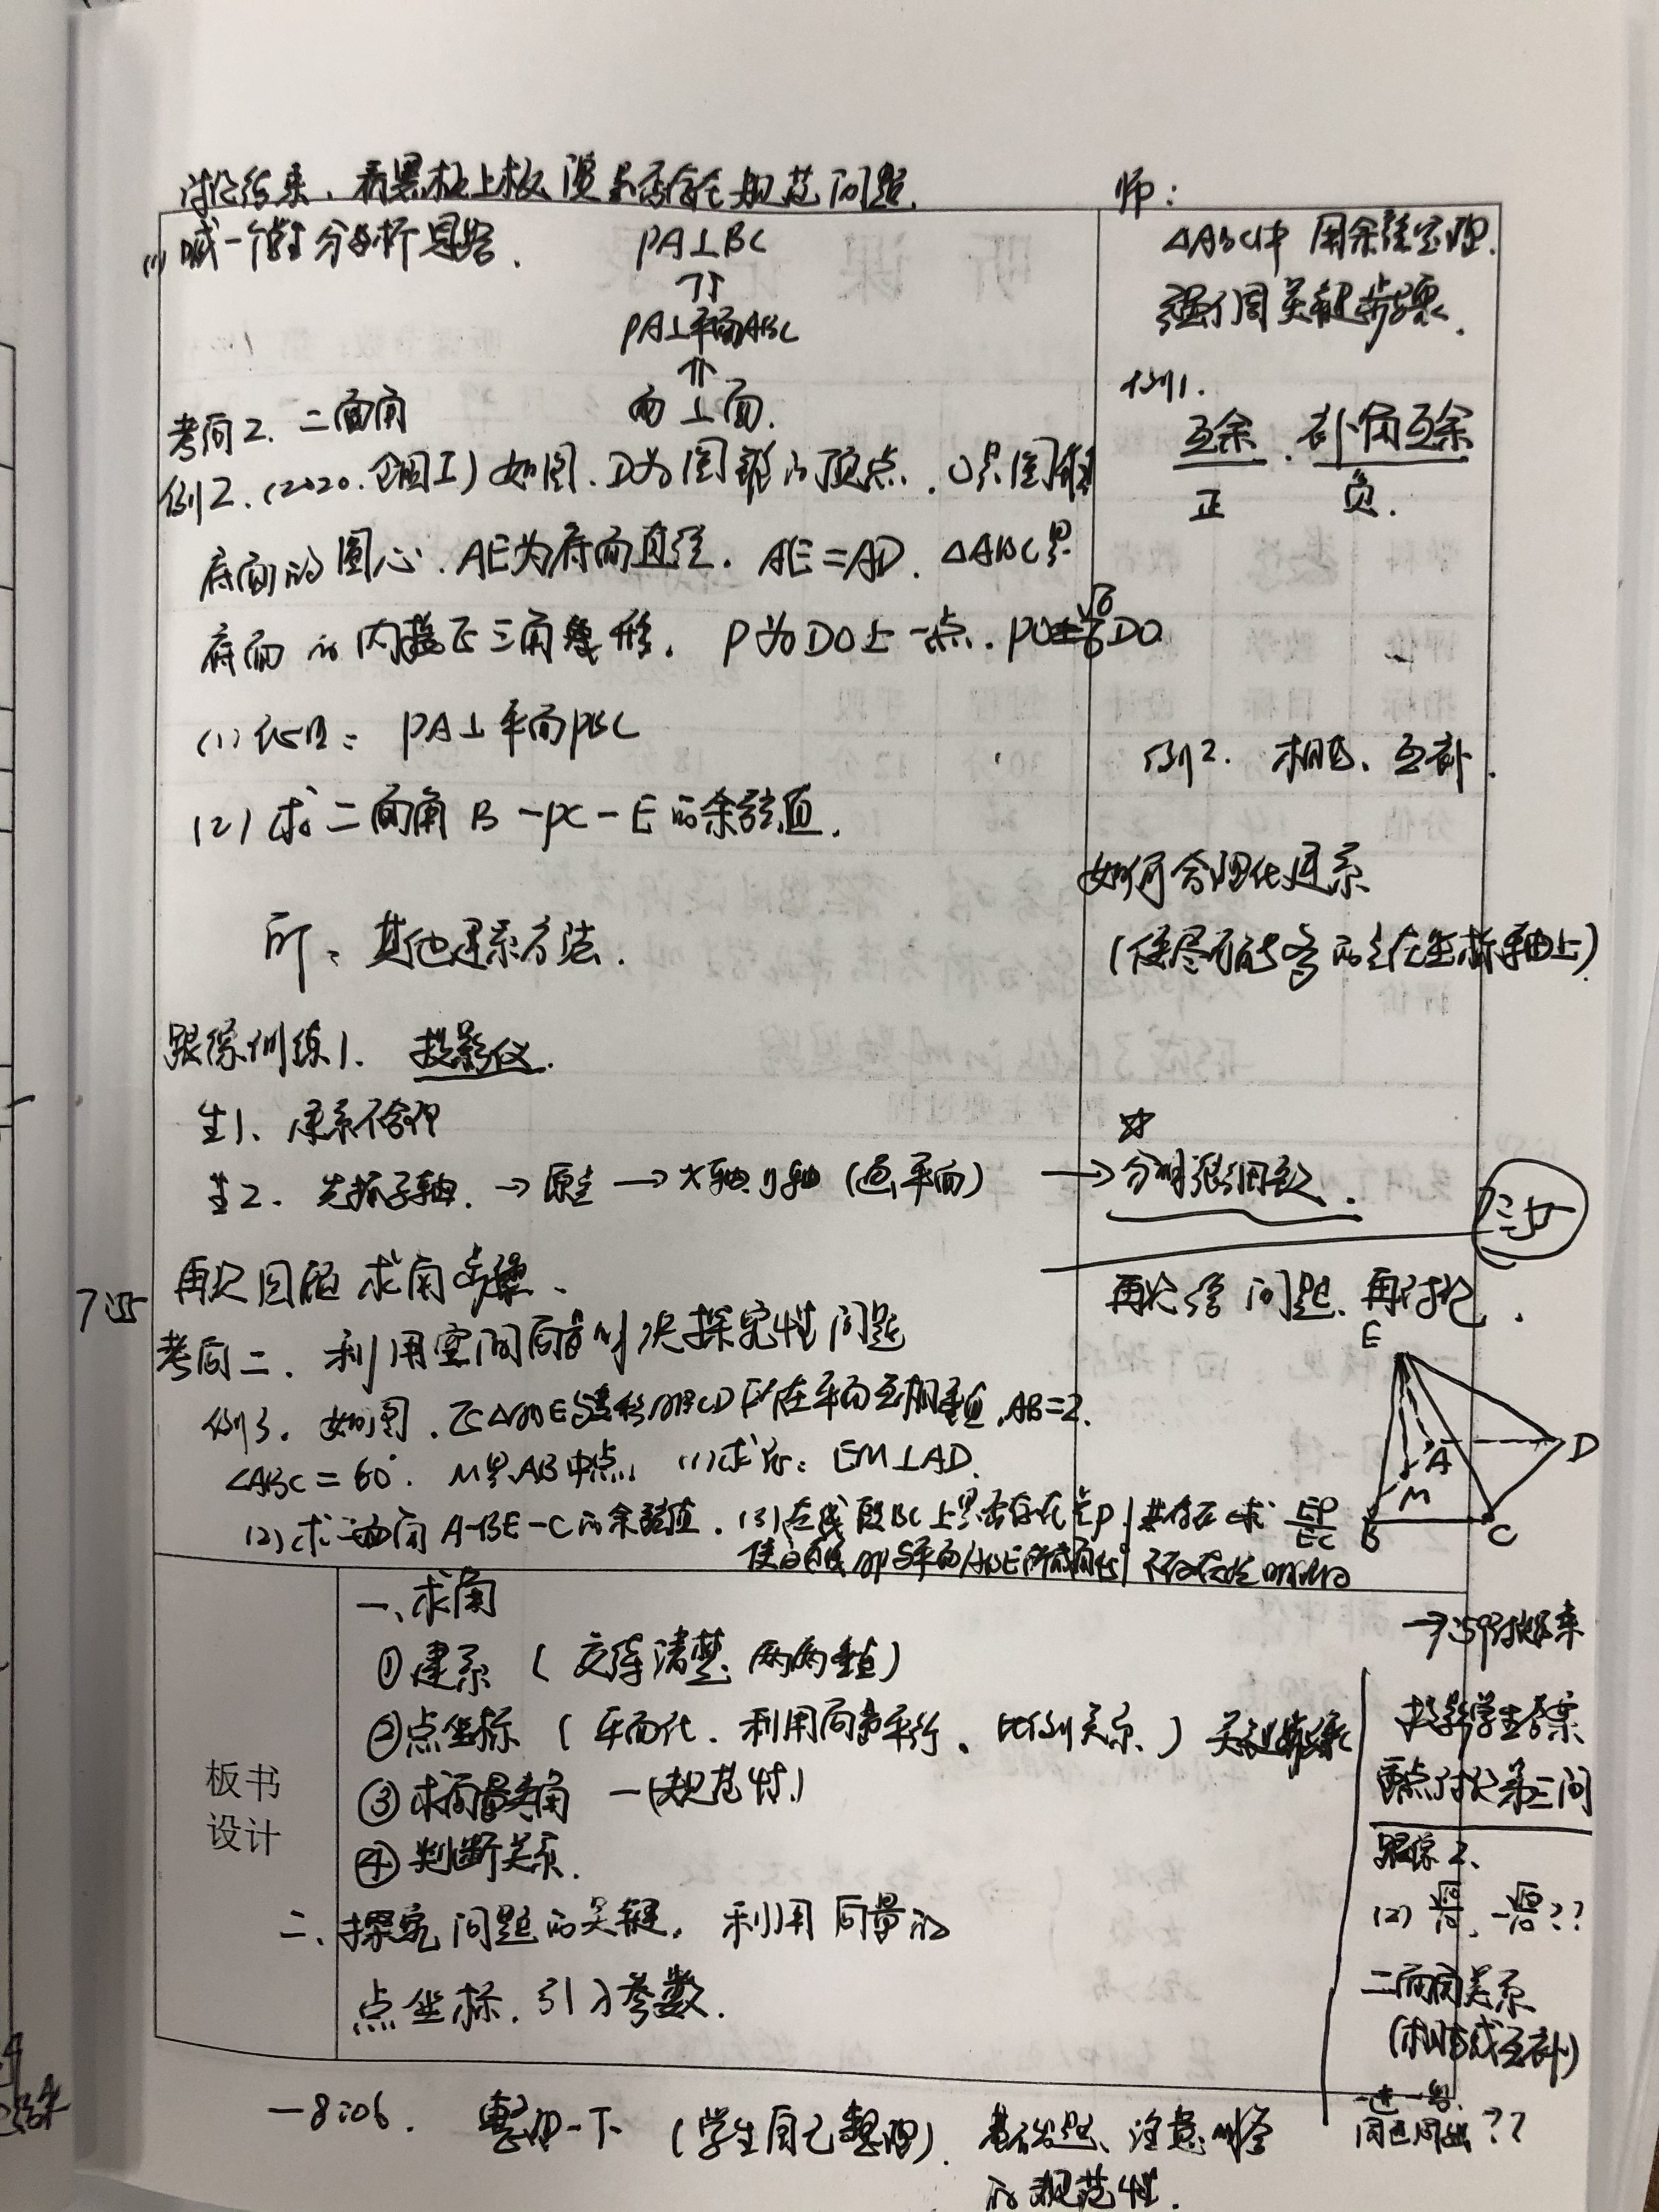 讨论结束、看黑板上板演是否存在规范问题.
(1) 喊一个学生分析思路.
PA⊥BC
⇑
PA⊥平面ABC
⇑
面⊥面.
考向2. 二面角
例2. (2020·全国I) 如图. D为圆锥的顶点. O是圆锥
底面的圆心. AE为底面直径. AE=AD. △ABC是
底面的内接正三角形. P为DO上一点. PO=√6/6 DO
(1) 证明: PA⊥平面PBC
(2) 求二面角B-PC-E的余弦值.
师、其他建系方法.
跟踪训练1. 投影仪.
生1、建系不合理
生2. 先找z轴. → 原点 → x轴、y轴 (底平面)
再次回顾求角步骤、
考向二. 利用空间向量解决探究性问题
例3. 如图. 正△ABE与菱形ABCD所在平面互相垂直. AB=2.
∠ABC=60°. M是AB中点. (1) 求证: EM⊥AD.
(2) 求二面角A-BE-C的余弦值. (3) 在线段 上是否存在点P
若存在求 EP/EC
师:
△ABC中 用余弦定理.
强调关键步骤.
例1.
互余. 补角互余
正 负.
例2. 相等、互补.
如何合理化建系
(使尽可能多的点在坐标轴上)
☆
→
再次 问题. 再讨论.
E
A
D
M
B
C
板书
设计
一、求角
① 建系 (交待清楚. 两两垂直)
② 点坐标 (平面化. 利用向量平行、比例关系)
③ 求向量夹角 — (规范性)
④ 判断关系.
二、探究问题的关键. 利用向量的
点坐标. 引入参数.
投影学生答案
重点讨论第三问
跟踪2、
(2)
二面角关系
(相等或互补)
??
—8:06. 整理一下 (学生自己整理). 基础题、注意
的规范性.